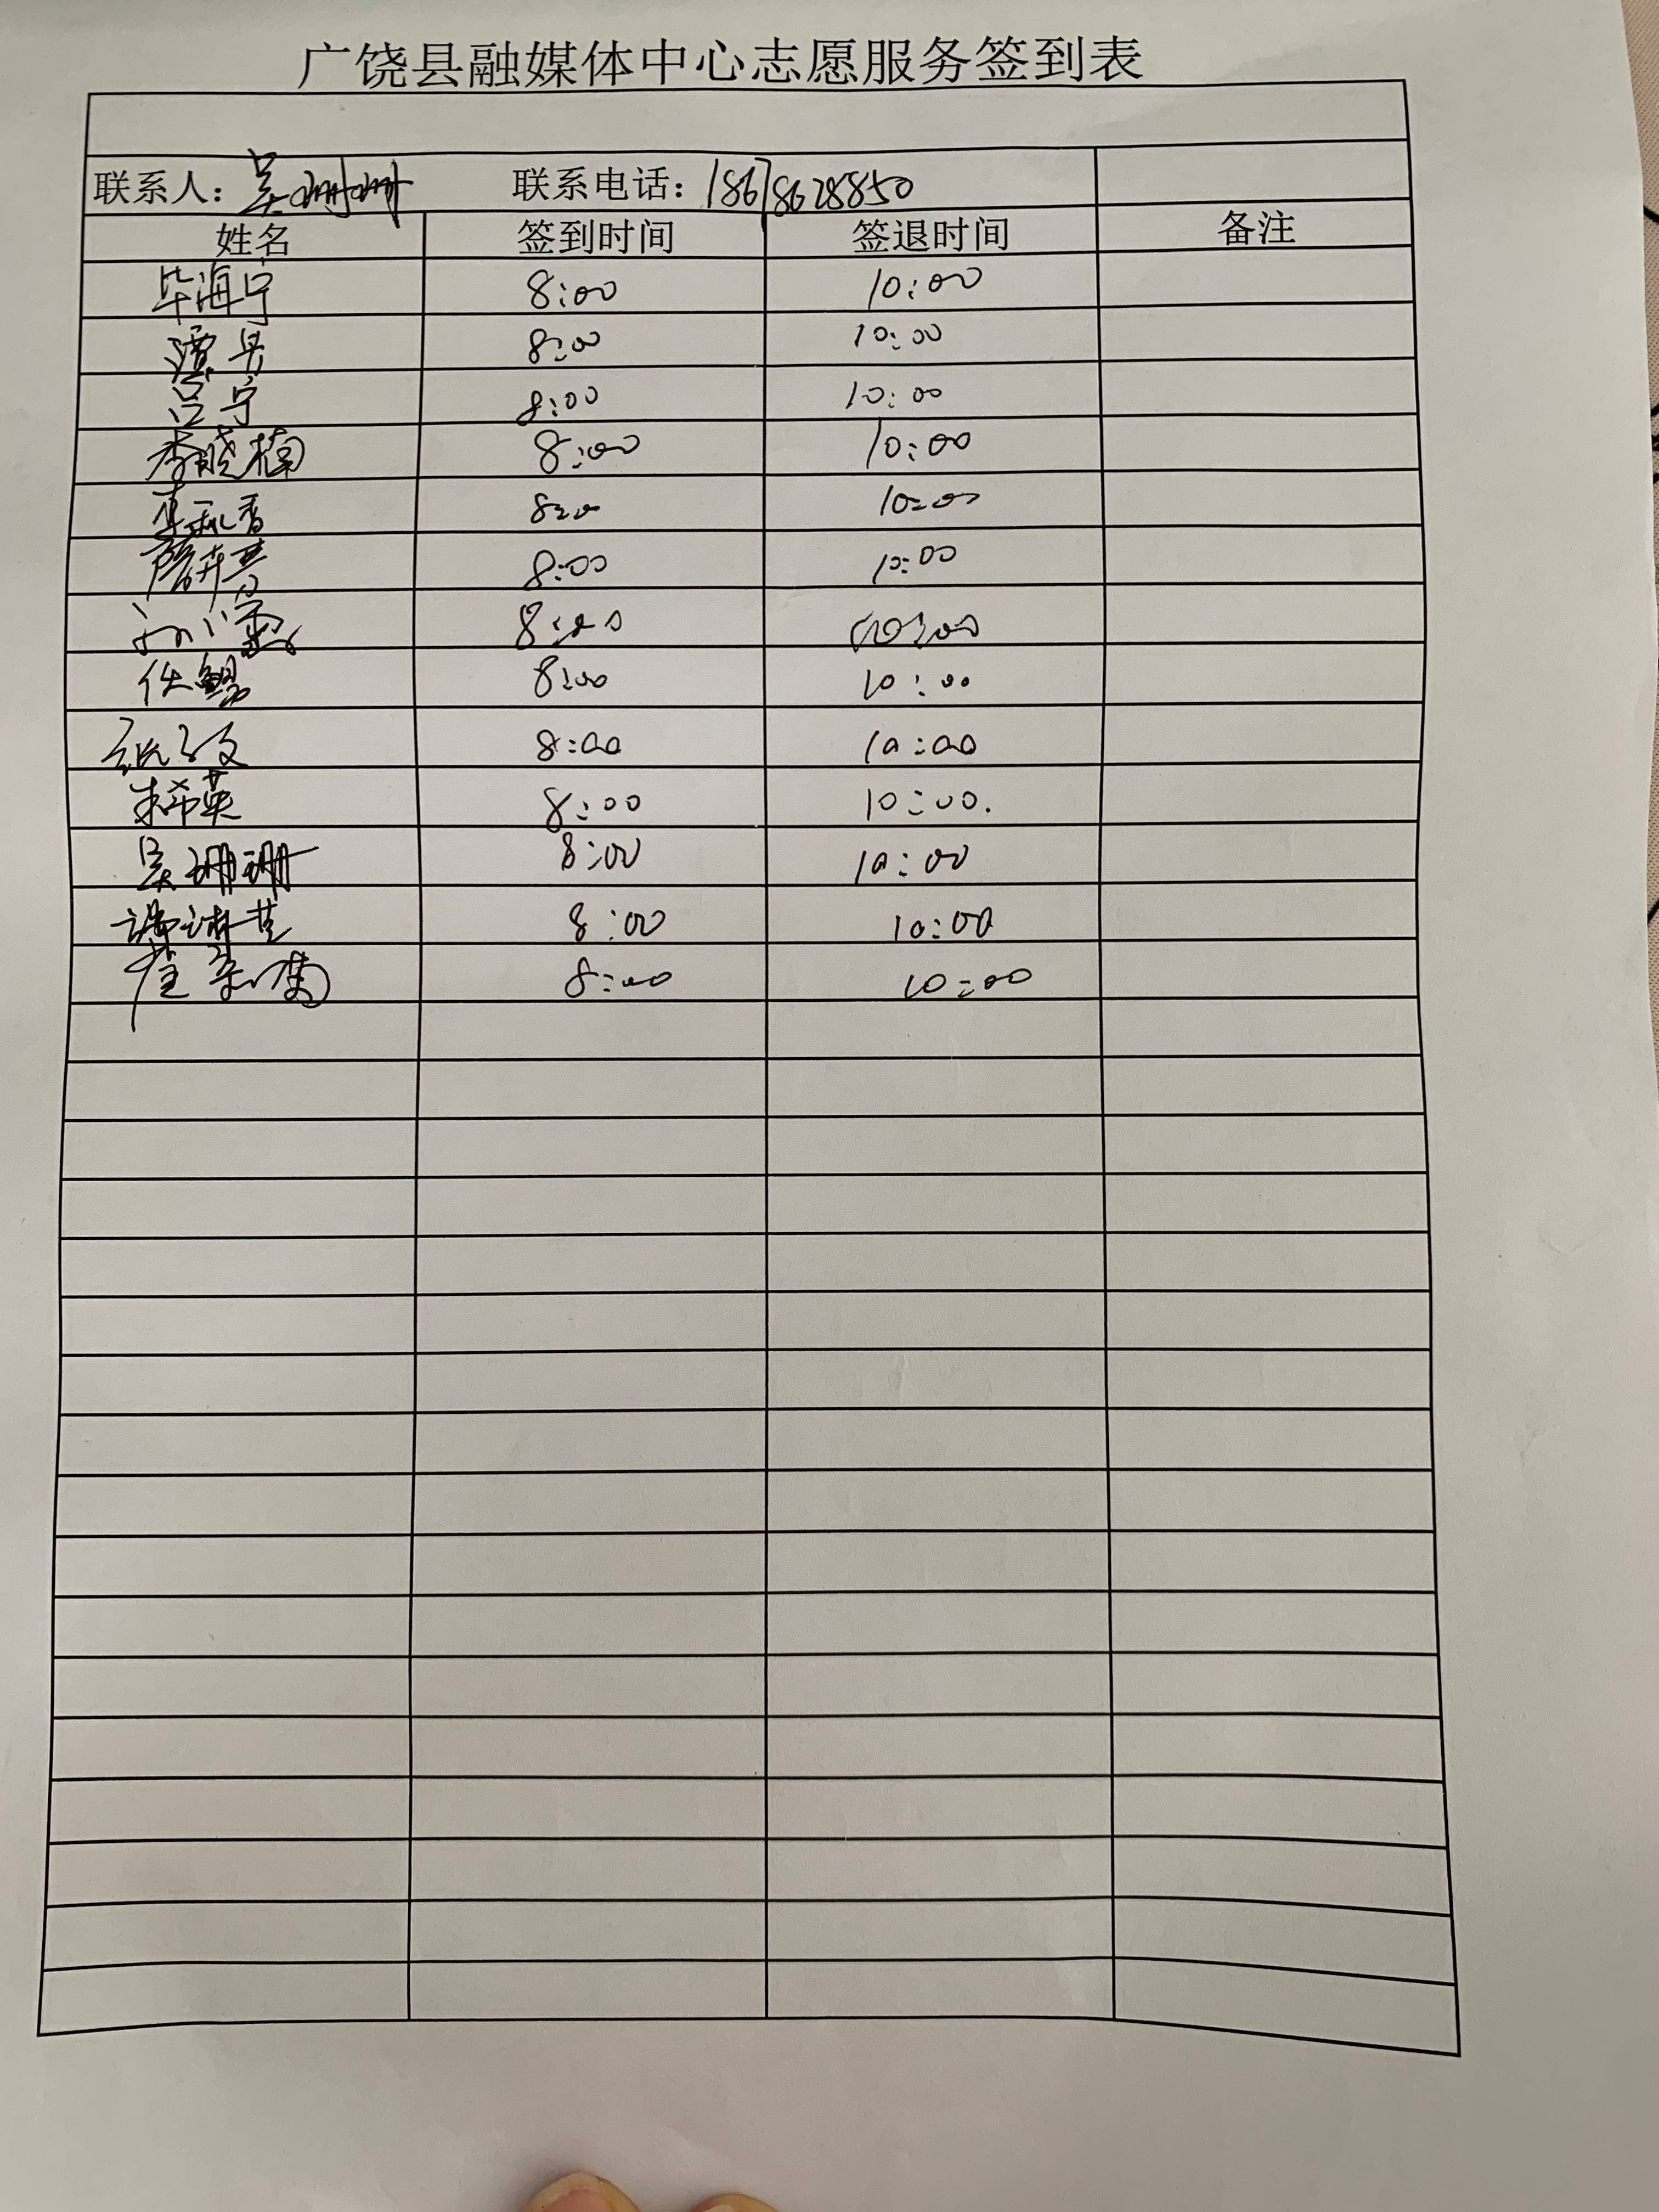 广饶县融媒体中心志愿服务签到表
联系人：吴珊珊 联系电话：18678628850
姓名 签到时间 签退时间 备注
毕海宁 8:00 10:00
谭丹 8:00 10:00
吕宁 8:00 10:00
李晓楠 8:00 10:00
8:00 10:00
8:00 10:00
8:00 10:00
任鲲 8:00 10:00
8:00 10:00
朱希英 8:00 10:00.
吴珊珊 8:00 10:00
8:00 10:00
崔 8:00 10:00